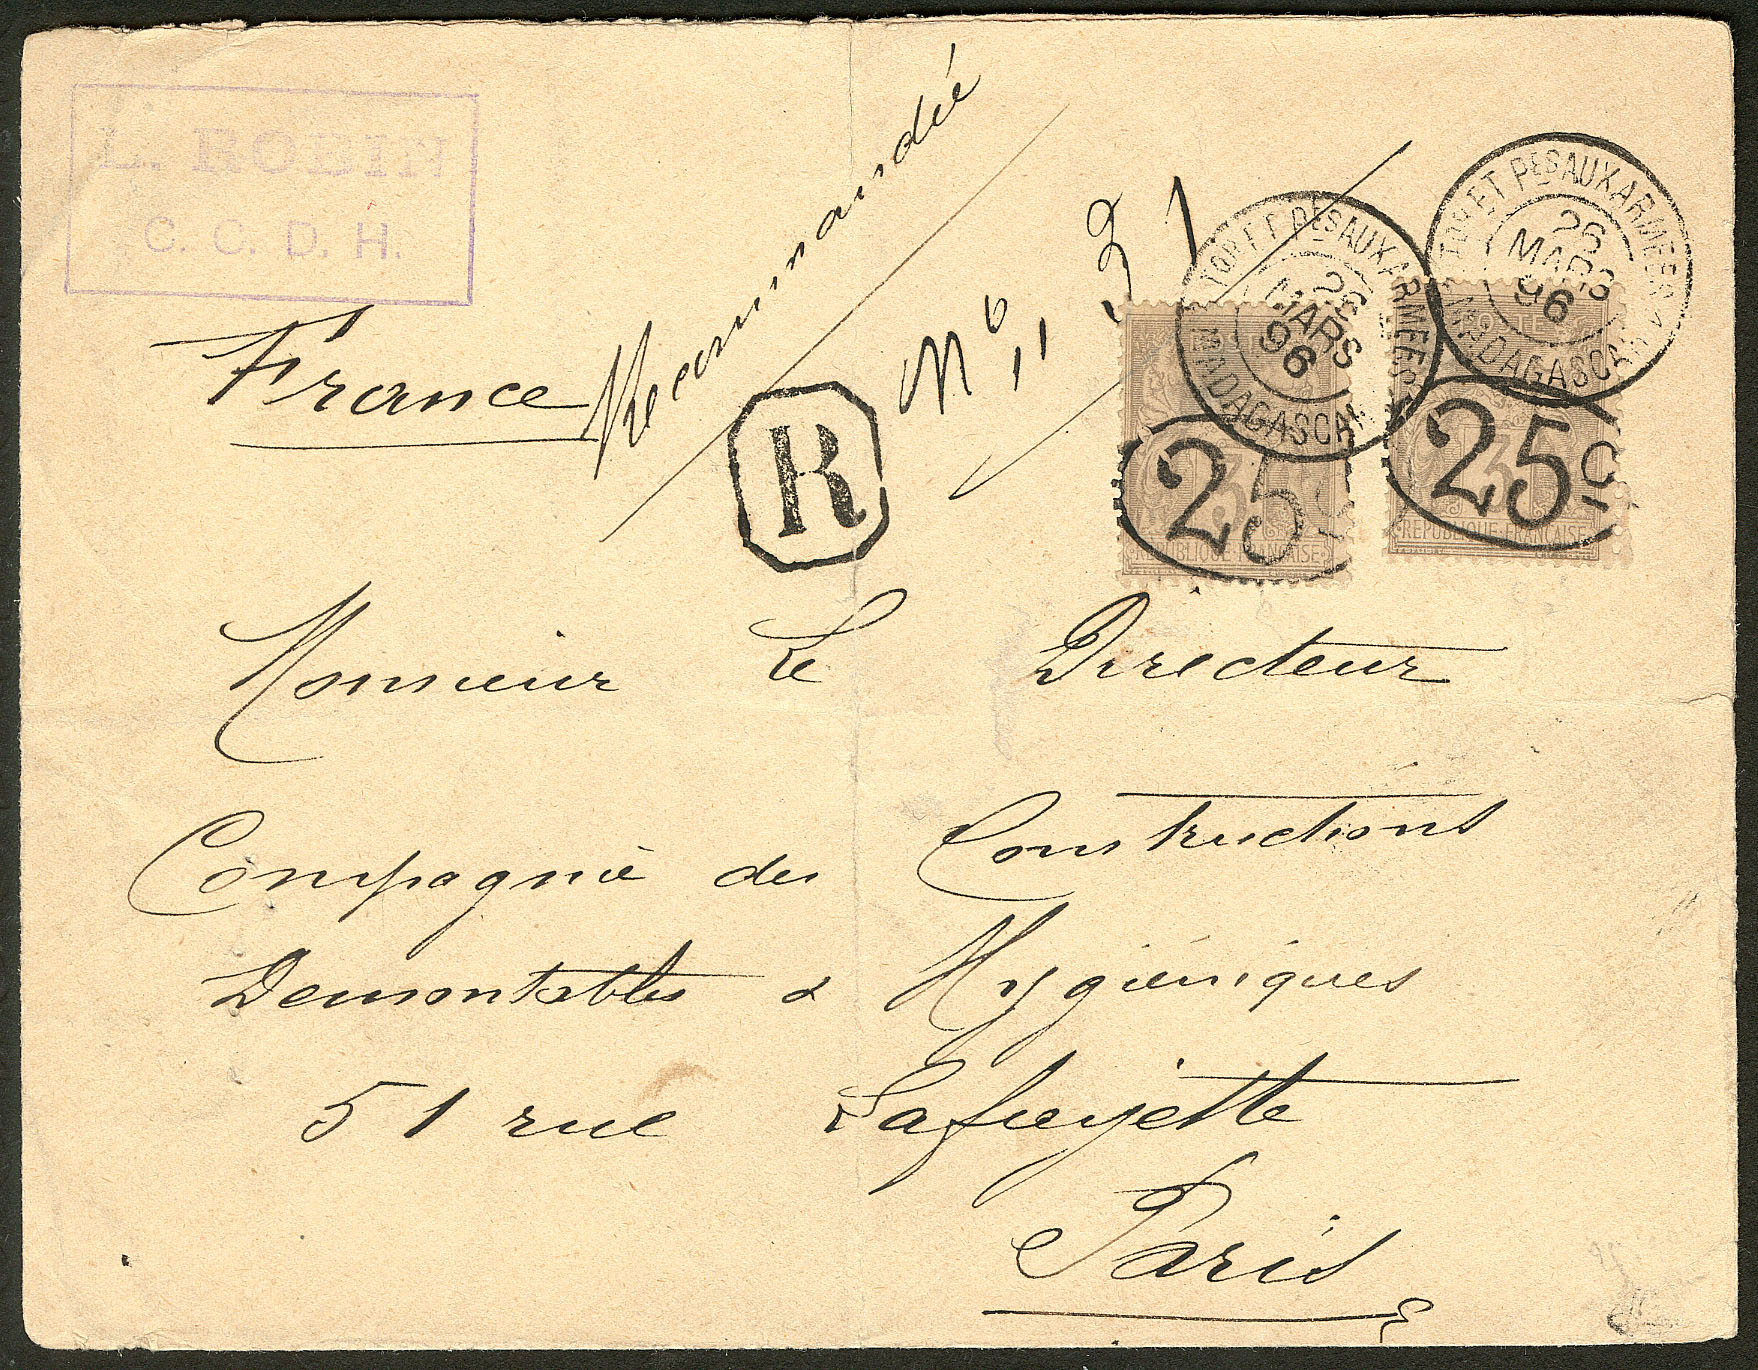 L. ROBIN
C. C. D. H.
France
Recommandée
No 31
R
TOR ET PES AUX ARMEES
26
MARS
96
MADAGASCAR
TOR ET PES AUX ARMEES
26
MARS
96
MADAGASCAR
25c
REPUBLIQUE FRANCAISE
25c
REPUBLIQUE FRANCAISE
Monsieur Le Directeur
Compagnie des Constructions
Demontables & Hygiéniques
51 rue Lafayette
Paris